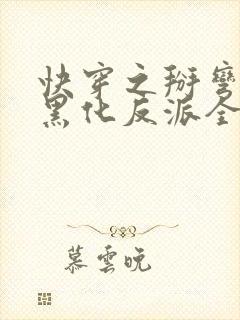 快穿之掰彎
黑化反派全
慕雲晚